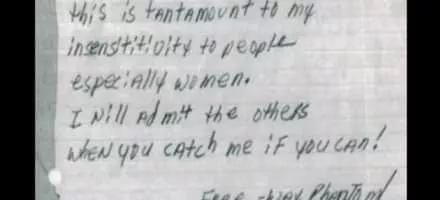 this is tantamount to my
insenstitivity to people
especially women.
I will admit the others
when you catch me if you can!
Free-way Phantom